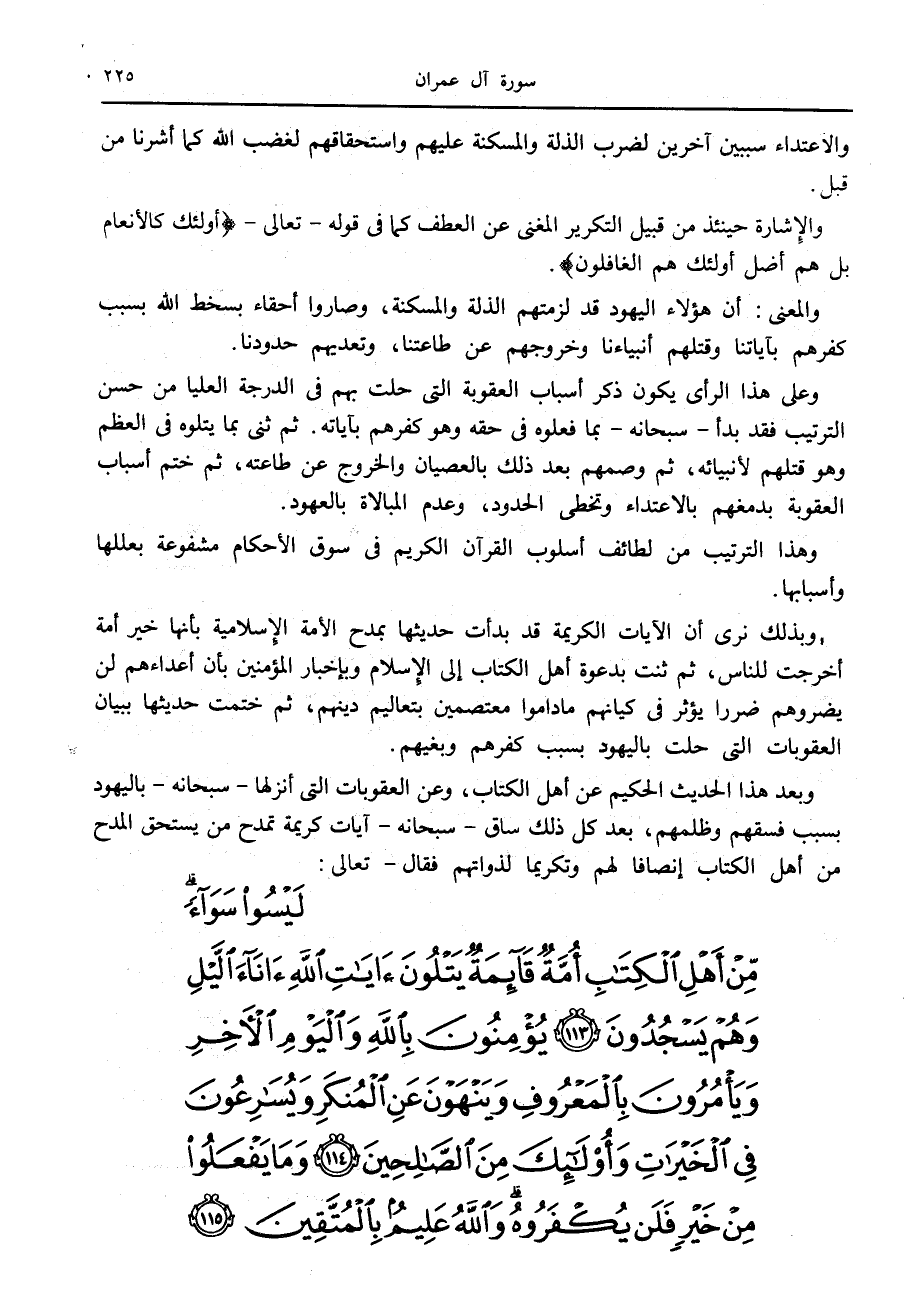 سورة آل عمران ٢٢٥
والاعتداء سببين آخرين لضرب الذلة والمسكنة عليهم واستحقاقهم لغضب الله كما أشرنا من
قبل .
والإشارة حينئذ من قبيل التكرير المغنى عن العطف كما فى قوله - تعالى - ﴿أولئك كالأنعام
بل هم أضل أولئك هم الغافلون﴾ .
والمعنى : أن هؤلاء اليهود قد لزمتهم الذلة والمسكنة، وصاروا أحقاء بسخط الله بسبب
كفرهم بآياتنا وقتلهم أنبياءنا وخروجهم عن طاعتنا، وتعديهم حدودنا.
وعلى هذا الرأى يكون ذكر أسباب العقوبة التى حلت بهم فى الدرجة العليا من حسن
الترتيب فقد بدأ - سبحانه - بما فعلوه فى حقه وهو كفرهم بآياته. ثم ثنى بما يتلوه فى العظم
وهو قتلهم لأنبيائه، ثم وصمهم بعد ذلك بالعصيان والخروج عن طاعته، ثم ختم أسباب
العقوبة بدمغهم بالاعتداء وتخطى الحدود، وعدم المبالاة بالعهود.
وهذا الترتيب من لطائف أسلوب القرآن الكريم فى سوق الأحكام مشفوعة بعللها
وأسبابها.
وبذلك نرى أن الآيات الكريمة قد بدأت حديثها بمدح الأمة الإسلامية بأنها خير أمة
أخرجت للناس، ثم ثنت بدعوة أهل الكتاب إلى الإسلام وبإخبار المؤمنين بأن أعداءهم لن
يضروهم ضررا يؤثر فى كيانهم ماداموا معتصمين بتعاليم دينهم، ثم ختمت حديثها ببيان
العقوبات التى حلت باليهود بسبب كفرهم وبغيهم.
وبعد هذا الحديث الحكيم عن أهل الكتاب، وعن العقوبات التى أنزلها - سبحانه - باليهود
بسبب فسقهم وظلمهم، بعد كل ذلك ساق - سبحانه - آيات كريمة تمدح من يستحق المدح
من أهل الكتاب إنصافا لهم وتكريما لذواتهم فقال - تعالى :
لَيْسُوا۟ سَوَآءً ۗ
مِّنْ أَهْلِ ٱلْكِتَٰبِ أُمَّةٌ قَآئِمَةٌ يَتْلُونَ ءَايَٰتِ ٱللَّهِ ءَانَآءَ ٱلَّيْلِ
وَهُمْ يَسْجُدُونَ ﴿١١٣﴾ يُؤْمِنُونَ بِٱللَّهِ وَٱلْيَوْمِ ٱلْءَاخِرِ
وَيَأْمُرُونَ بِٱلْمَعْرُوفِ وَيَنْهَوْنَ عَنِ ٱلْمُنكَرِ وَيُسَٰرِعُونَ
فِى ٱلْخَيْرَٰتِ وَأُو۟لَٰٓئِكَ مِنَ ٱلصَّٰلِحِينَ ﴿١١٤﴾ وَمَا يَفْعَلُوا۟
مِنْ خَيْرٍ فَلَن يُكْفَرُوهُ ۗ وَٱللَّهُ عَلِيمٌۢ بِٱلْمُتَّقِينَ ﴿١١٥﴾